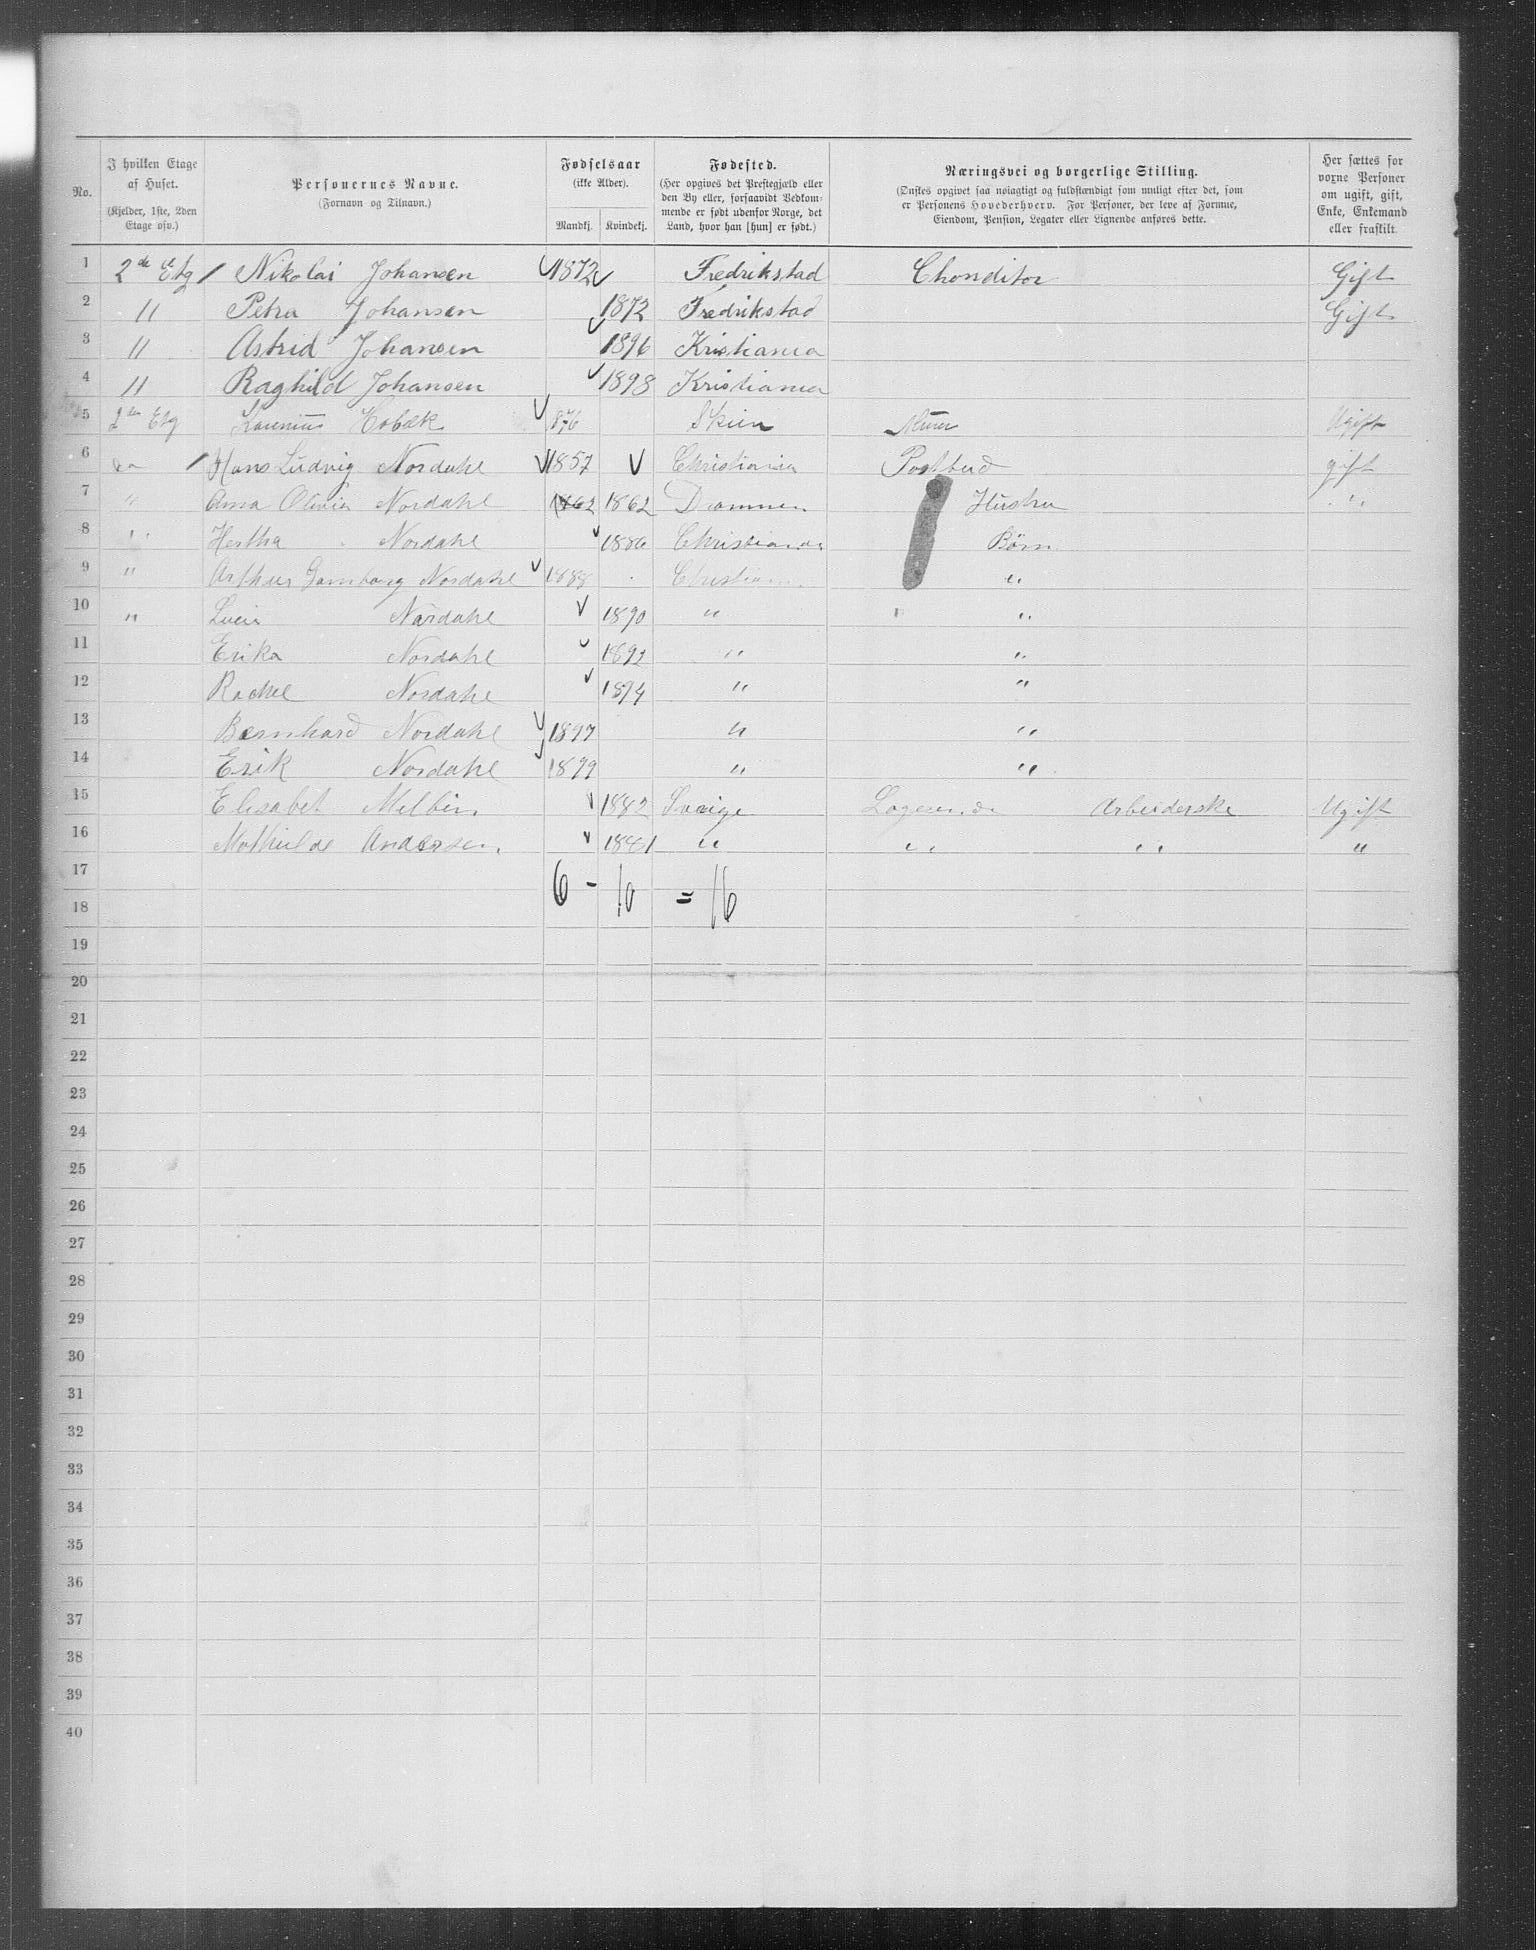 No. | I hvilken Etage af Huset. (Kjelder, 1ste, 2den Etage osv.) | Personernes Navne. (Fornavn og Tilnavn.) | Fødselsaar (ikke Alder). Mandkj. | Kvindekj. | Fødested. (Her opgives det Prestegjæld eller den By eller, forsaavidt Vedkommende er født udenfor Norge, det Land, hvor han [hun] er født.) | Næringsvei og borgerlige Stilling. (Ønskes opgivet saa nøiagtigt og fuldstændigt som muligt efter det, som er Personens Hovederhverv. For Personer, der leve af Formue, Eiendom, Pension, Legater eller Lignende anføres dette. | Her sættes for voxne Personer om ugift, gift, Enke, Enkemand eller fraskilt.
1 2de Etg / Nikolai Johansen √ 1872 √ Fredrikstad Chonditor Gift
2 " Petra Johansen 1872 Fredrikstad Gift
3 " Astrid Johansen √ 1896 Kristiania
4 " Raghild Johansen √ 1898 Kristiania
5 2den Etg Hobæk √ 876 Skien Murer Ugift
6 do / Hans Ludvig Nordahl √ 1857 √ Christiania Postbud gift
7 " Anna Olivia Nordahl 1862 1862 Drammen Hustru "
8 " Hertha Nordahl √ 1886 Christiania Børn
9 " Arthur Nordahl √ 1888 Christiania "
10 " Nordahl √ 1890 " "
11 Erika Nordahl √ 1892 " "
12 Rachel Nordahl √ 1894 " "
13 Bernhard Nordahl √ 1897 " "
14 Erik Nordahl √ 1899 " "
15 Elisabet Melbin √ 1882 Sverige Logerende Arbeiderske Ugift
16 Mathilde Andersen √ 1881 " " " "
17 6 - 10 = 16
18
19
20
21
22
23
24
25
26
27
28
29
30
31
32
33
34
35
36
37
38
39
40